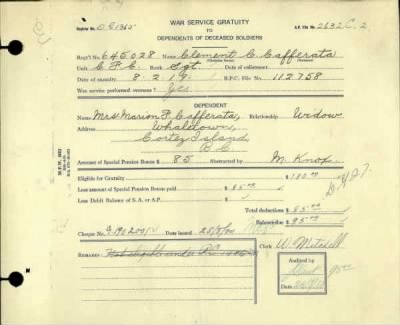 WAR SERVICE GRATUITY
TO
DEPENDENTS OF DECEASED SOLDIERS
Register No.
S.P. File No. 2632 C.2
Reg't No. 645028 Name Clement C. Cafferata
(Christian Name) (Surname)
Unit C.F.C. Rank Sgt. Date of enlistment
Date of casualty 8.2.19. B.P.C. File No. 112758
Was service performed overseas? Yes
DEPENDENT
Name Mrs. Marion P. Cafferata, Relationship Widow
Address Whaletown,
Cortez Island,
B.C.
Amount of Special Pension Bonus $ 85 Abstracted by M. Knox.
Eligible for Gratuity $ 180.00
Less amount of Special Pension Bonus paid $ 85.00
Less Debit Balance of S.A. or A.P. $
Total deductions $ 85.00
Balance due $ 95.00
Cheque No. Date issued
Clerk W. Mitchell
REMARKS Not eligible under P.C.
Audited by